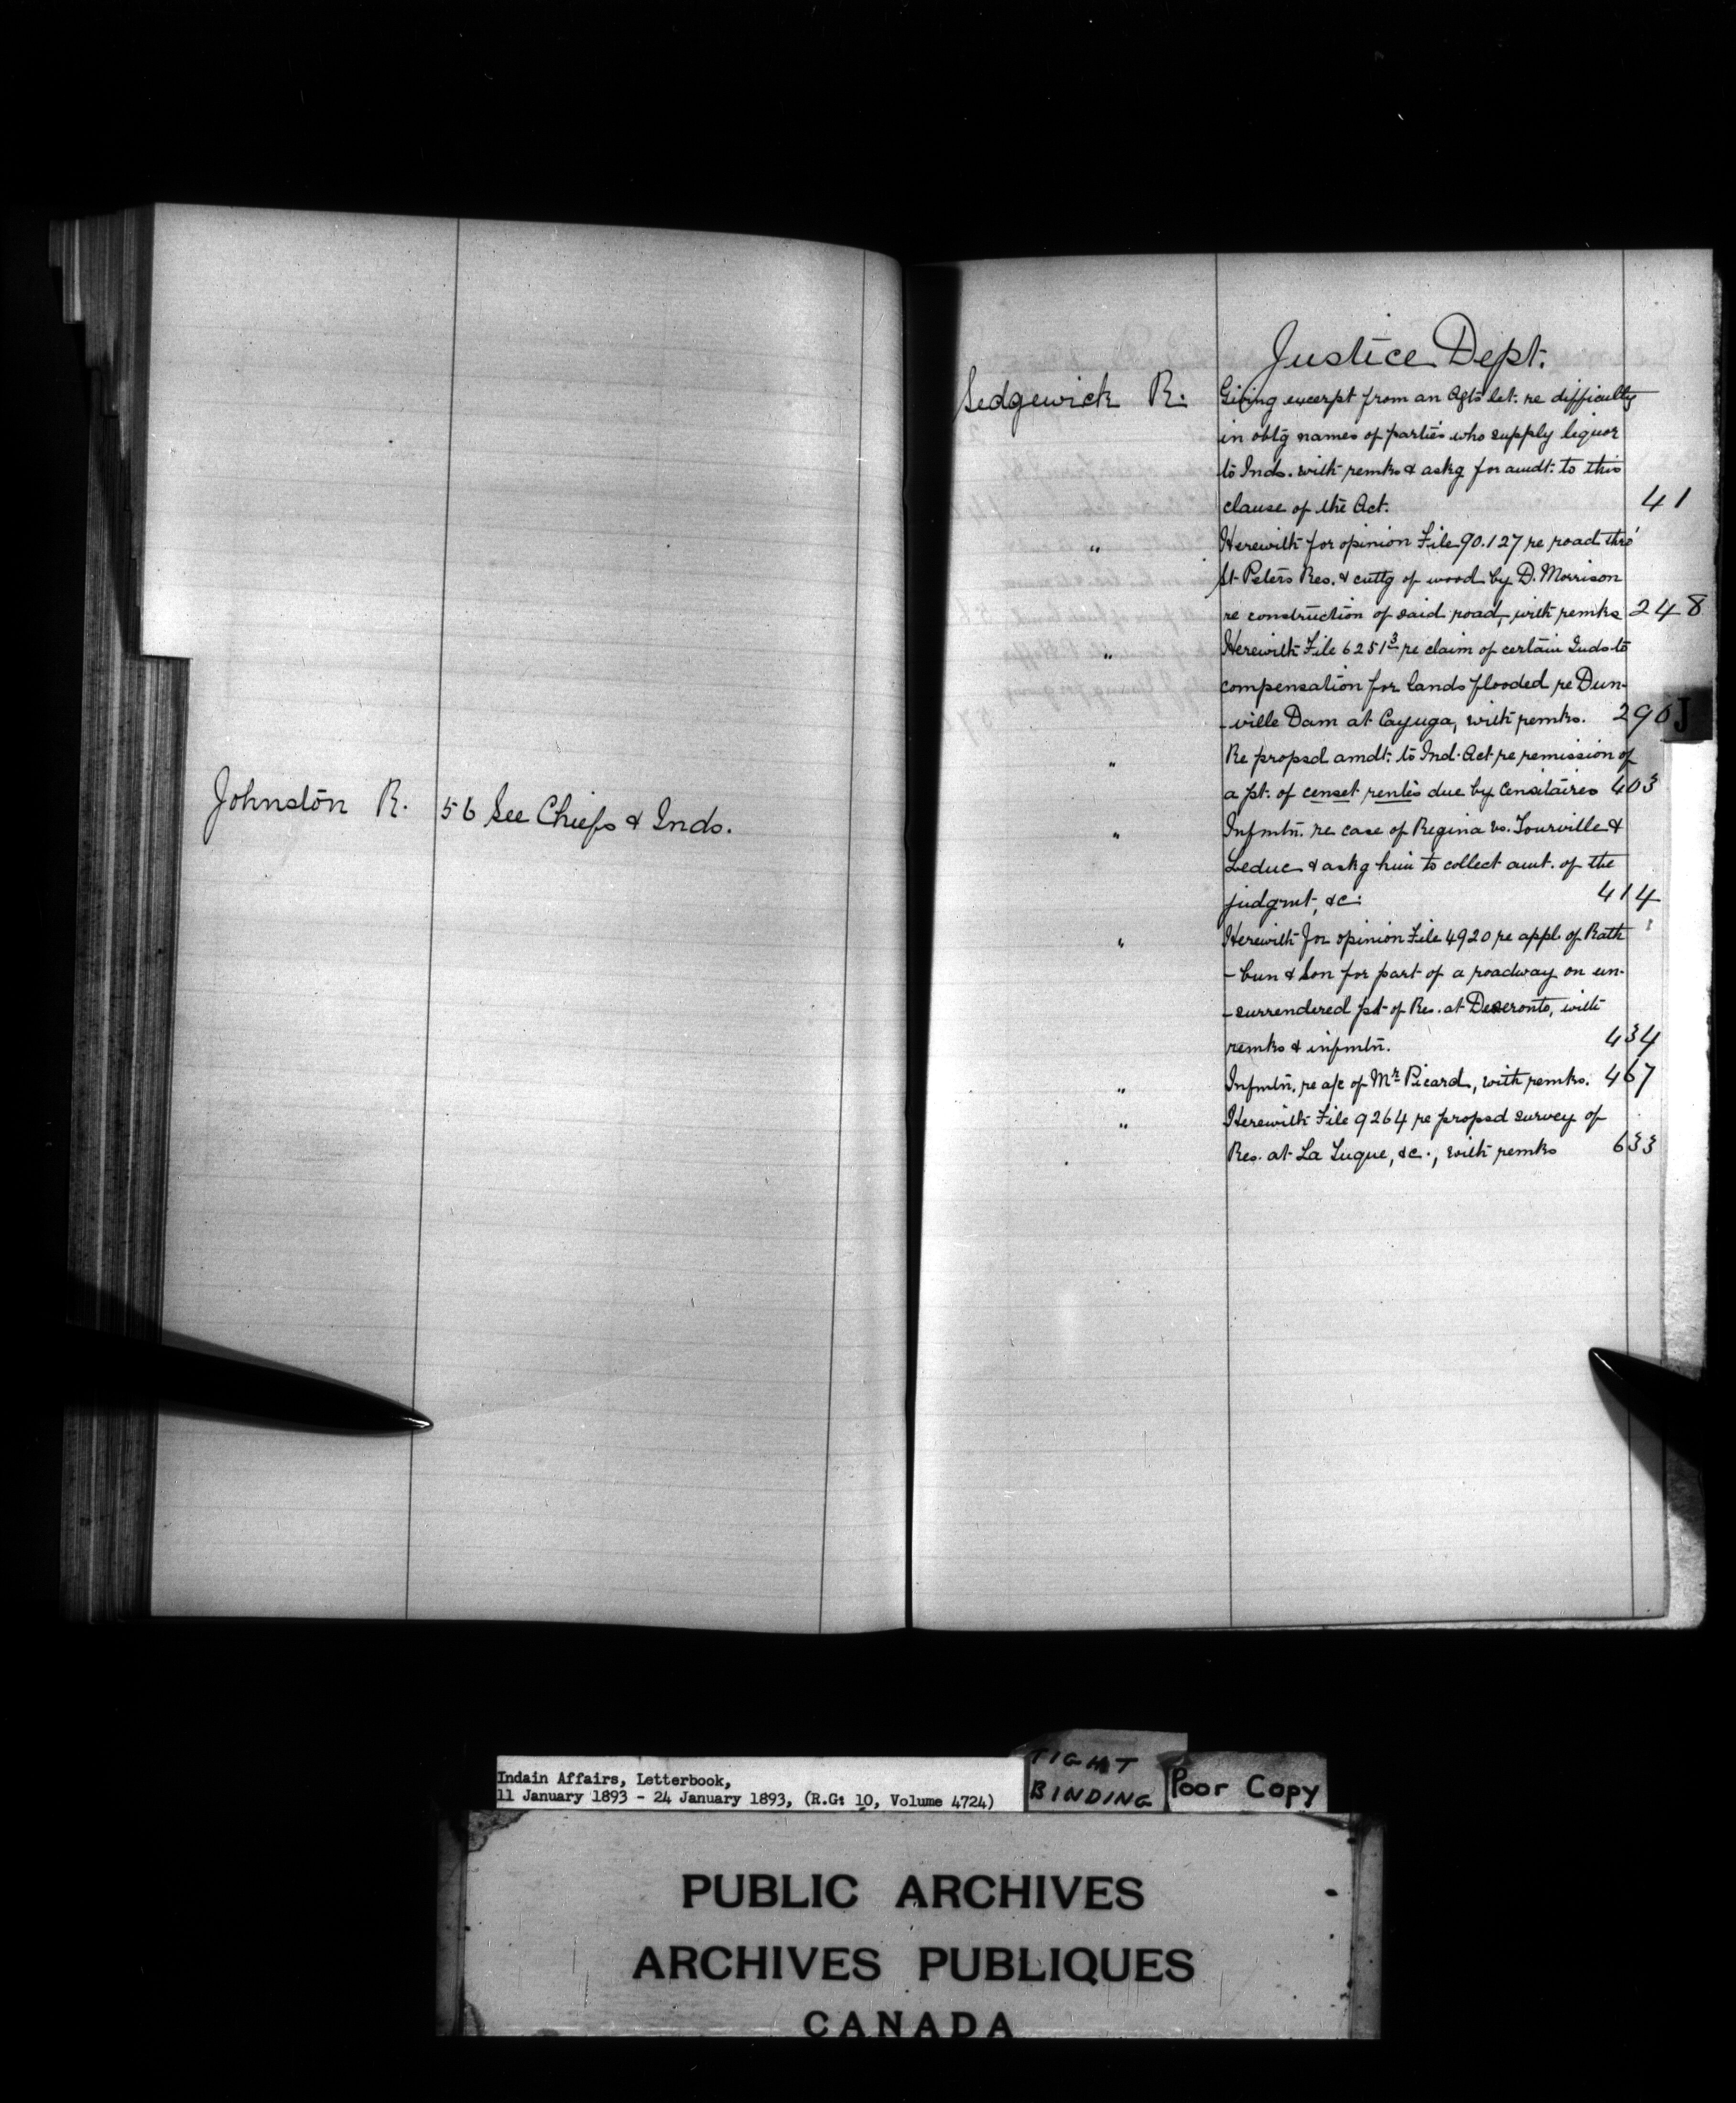 Johnston R. 56 See Chiefs & Inds.
Justice Dept.
Sedgewick R. Giving excerpt from an Agts let. re difficulty
in obtg names of parties who supply liquor
to Inds. with remks & askg for amdt. to this
clause of the Act. 41
" Herewith for opinion File 90.127 re road thro'
St. Peters Res. & cuttg of wood by D. Morrison
re construction of said road, with remks 248
" Herewith File 6251³ re claim of certain Inds to
compensation for lands flooded re Dun-
-ville Dam at Cayuga, with remks. 296
J
" Re propsd amdt. to Ind. Act re remission of
a pt. of censet rentes due by Censitaires 403
" Infmtn. re case of Regina vs. Tourville &
Leduc & askg him to collect amt. of the
judgmt, &c. 414
" Herewith for opinion File 4920 re appl. of Rath
-bun & Son for part of a roadway on un-
-surrendered pt. of Res. at Deseronto, with
remks & infmtn. 434
" Infmtn. re a/c of Mr. Picard, with remks. 467
" Herewith File 9264 re propsd survey of
Res. at La Tuque, &c., with remks 633
Indain Affairs, Letterbook,
11 January 1893 - 24 January 1893, (R.G: 10, Volume 4724)
TIGHT
BINDING
Poor Copy
PUBLIC ARCHIVES
ARCHIVES PUBLIQUES
CANADA